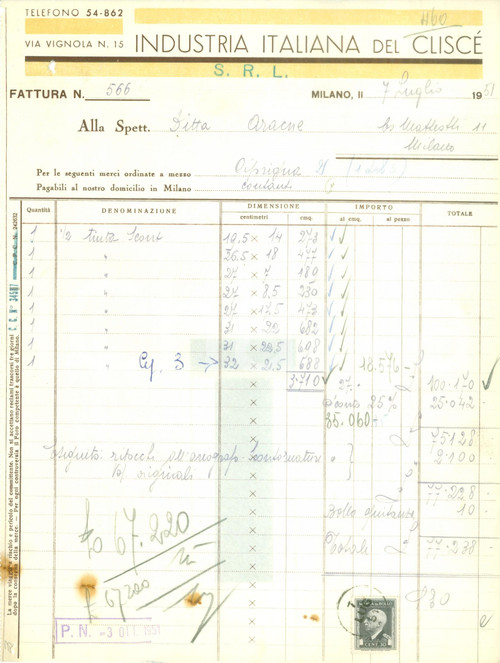 TELEFONO 54-862
460
VIA VIGNOLA N. 15 INDUSTRIA ITALIANA DEL CLISCÉ
S. R. L.
FATTURA N. 566 MILANO, lì 7 Luglio 1951
Alla Spett. Ditta Aracne
Milano
Per le seguenti merci ordinate a mezzo
Pagabili al nostro domicilio in Milano contanti
Quantità DENOMINAZIONE DIMENSIONE IMPORTO TOTALE
centimetri cmq. al cmq. al pezzo
1 19,5 × 14 273
1 " 26,5 × 18 477
1 " 27 × 7 189
1 " 27 × 8,5 230
1 " 27 × 17,5 473
1 " 31 × 22 682
1 " 608
1 " Cg. 3 → 32 × 21,5 688 18.576
3.710 27 100.170
Sconto 25% 25.042
35.060
75128
2.100
77.228
Bollo quietanza 10
Totale 77.238
£ 67.220
£ 67220
930
P. N. -3 OTT. 1951
CENT. 10
La merce viaggia a rischio e pericolo del committente. Non si accettano reclami trascorsi tre giorni
dopo la consegna della merce. - Per ogni controversia il Foro competente è quello di Milano.